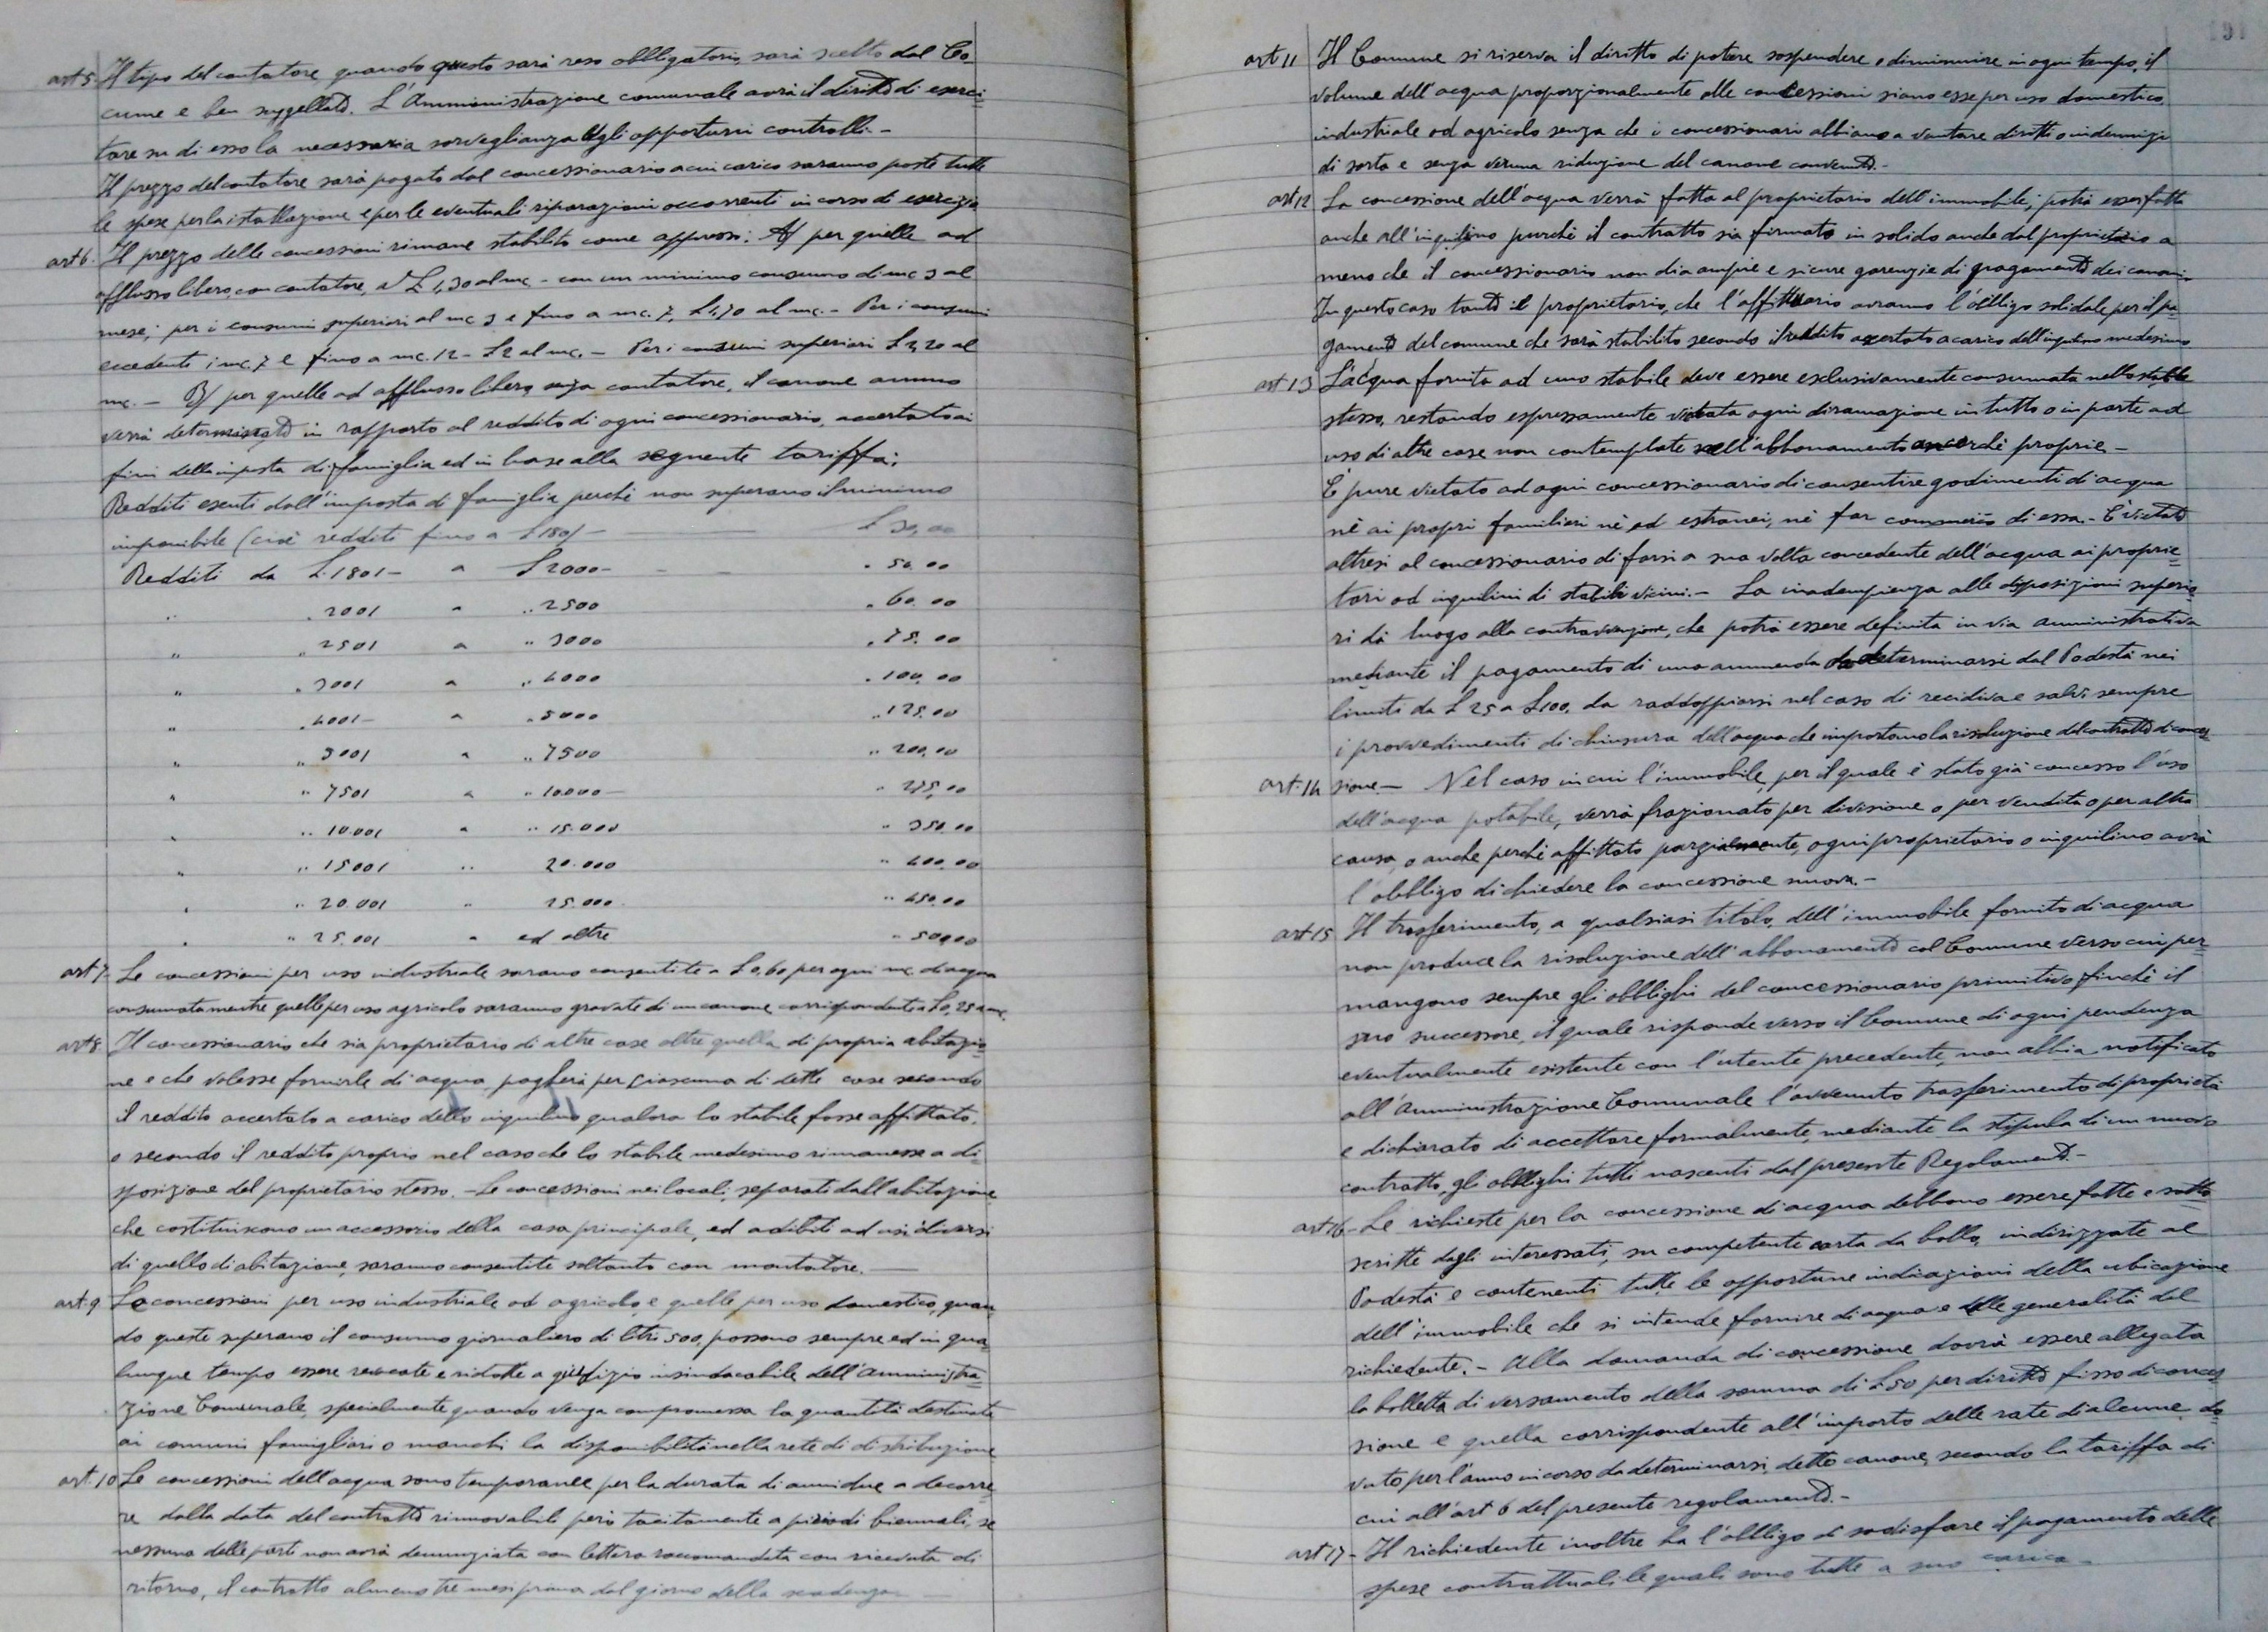 art 5. Il tipo del contatore, quando questo sarà reso obbligatorio, sarà scelto dal Co-
mune e ben suggellato. L'Amministrazione comunale avrà il diritto di eserci-
tare su di esso la necessaria sorveglianza e gli opportuni controlli. -
Il prezzo del contatore sarà pagato dal concessionario a cui carico saranno poste tutte
le spese per la istallazione e per le eventuali riparazioni occorrenti in corso di esercizio
art 6. Il prezzo delle concessioni rimane stabilito come appresso: A/ per quelle ad
afflusso libero, con contatore, a £ 1,30 al mc. - con un minimo consumo di mc 3 al
mese; per i consumi superiori al mc 3 e fino a mc. 7, £ 1,70 al mc. - Per i consumi
eccedenti i mc. 7 e fino a mc. 12 - £ 2 al mc. - Per i consumi superiori £ 2,20 al
mc. - B/ per quelle ad afflusso libero senza contatore, il canone annuo
verrà determinato in rapporto al reddito di ogni concessionario, accertato ai
fini della imposta di famiglia ed in base alla seguente tariffa:
Redditi esenti dall'imposta di famiglia perchè non superano il minimo
imponibile (cioè redditi fino a £ 180/ - £ 30,00
Redditi da £. 1801 - a £ 2000 - - - " 50.00
" " 2001 a " 2500 " 60.00
" " 2501 a " 3000 " 75.00
" " 3001 a " 4000 " 100.00
" " 4001 - a " 5000 " 125.00
" " 5001 a " 7500 " 200,00
" " 7501 a " 10.000 - " 275,00
" " 10.001 a " 15.000 " 350.00
" " 15001 " 20.000 " 400.00
" " 20.001 " 25.000. " 450.00
" " 25.001 " ed oltre " 500,00
art 7. Le concessioni per uso industriale sarano consentite a £ 0,60 per ogni mc. di acqua
consumata mentre quelle per uso agricolo saranno gravate di un canone corrispondente a £ 0,25 a mc.
art 8. Il concessionario che sia proprietario di altre case oltre quella di propria abitazio-
ne e che volesse fornirle di acqua, pagherà per ciascuna di dette case secondo
il reddito accertato a carico dello inquilino qualora lo stabile fosse affittato,
o secondo il reddito proprio nel caso che lo stabile medesimo rimanesse a di-
sposizione del proprietario stesso. - Le concessioni nei locali, separati dall'abitazione
che costituiscono un accessorio della casa principale, ed adibiti ad usi diversi
di quello di abitazione, saranno consentite soltanto con montatore. -
art. 9 Le concessioni per uso industriale ad agricolo, e quelle per uso domestico, quan-
do queste superano il consumo giornaliero di litri 500, possono sempre ed in qua-
lunque tempo essere revocate e ridotte a giudizio insindacabile dell'Amministra-
zione Comunale, specialmente quando venga compromessa la quantità destinata
ai comuni famigliari o manchi la disponibilità nella rete di distribuzione
art. 10 Le concessioni dell'acqua sono temporanee per la durata di anni due a decorre-
re dalla data del contratto rinnovabile però tacitamente a periodi biennali, se
nessuna delle parti non avrà denunziata con lettera raccomandata con ricevuta di
ritorno, il contratto almeno tre mesi prima dal giorno della scadenza -
191
art 11 Il Comune si riserva il diritto di potere sospendere o diminuire in ogni tempo, il
volume dell'acqua proporzionalmente alle concessioni siano esse per uso domestico,
industriale od agricolo senza che i concessionari abbiano a vantare diritti o indennizzi
di sorta e senza veruna riduzione del canone convenuto. -
art 12 La concessione dell'acqua verrà fatta al proprietario dell'immobile; potrà esser fatta
anche all'inquilino purchè il contratto sia firmato in solido anche dal proprietario a
meno che il concessionario non dia ampie e sicure garenzie di pagamento dei canoni.
In questo caso tanto il proprietario, che l'affittuario avranno l'obbligo solidale per il pa-
gamento del comune che sarà stabilito secondo il reddito accertato a carico dell'inquilino medesimo.
art 13 L'acqua fornita ad uno stabile deve essere esclusivamente consumata nello stabile
stesso, restando espressamente vietata ogni diramazione in tutto o in parte ad
uso di altre case non contemplate nell'abbonamento ancorchè proprie. -
È pure vietato ad ogni concessionario di consentire godimenti di acqua
nè ai propri familieri nè ad estranei, nè far commercio di essa. - È vietato
altresi al concessionario di farsi a sua volta concedente dell'acqua ai proprie-
tari od inquilini di stabili vicini. - La inadempienza alle disposizioni superio-
ri dà luogo alla contravvenzione, che potrà essere definita in via amministrativa
mediante il pagamento di una ammenda da determinarsi dal Podestà nei
limiti da £ 25 a £ 100, da raddoppiarsi nel caso di recidiva e salvi sempre
i provvedimenti di chiusura dell'acqua che importano la risoluzione del contratto di conces-
art. 14 sione. - Nel caso in cui l'immobile, per il quale è stato già concesso l'uso
dell'acqua potabile, verrà frazionato per divisione o per vendita o per altra
causa, o anche perchè affittato parzialmente, ogni proprietario o inquilino avrà
l'obbligo di chiedere la concessione nuova. -
art 15 Il trasferimento, a qualsiasi titolo, dell'immobile fornito di acqua
non produce la risoluzione dell'abbonamento col Comune verso cui per-
mangono sempre gli obblighi del concessionario primitivo finchè il
suo successore, il quale risponde verso il Comune di ogni pendenza
eventualmente esistente con l'utente precedente, non abbia notificato
all'Amministrazione Comunale l'avvenuto trasferimento di proprietà
e dichiarato di accettare formalmente, mediante la stipula di un nuovo
contratto, gli obblighi tutti nascenti dal presente Regolamento. -
art 16 - Le richieste per la concessione di acqua debbono essere fatte e sotto-
scritte dagli interessati, su competente carta da bollo, indirizzate al
Podestà e contenenti tutte le opportune indicazioni della ubicazione
dell'immobile che si intende fornire di acqua e delle generalità del
richiedente. - Alla domanda di concessione dovrà essere allegata
la bolletta di versamento della somma di £ 50 per diritto fisso di conces-
sione e quella corrispondente all'importo delle rate di alcune do-
vuto per l'anno in corso da determinarsi, detto canone, secondo la tariffa di
cui all'art 6 del presente regolamento. -
art 17 - Il richiedente inoltre ha l'obbligo di sodisfare il pagamento delle
spese contrattuali le quali sono tutte a suo carico -